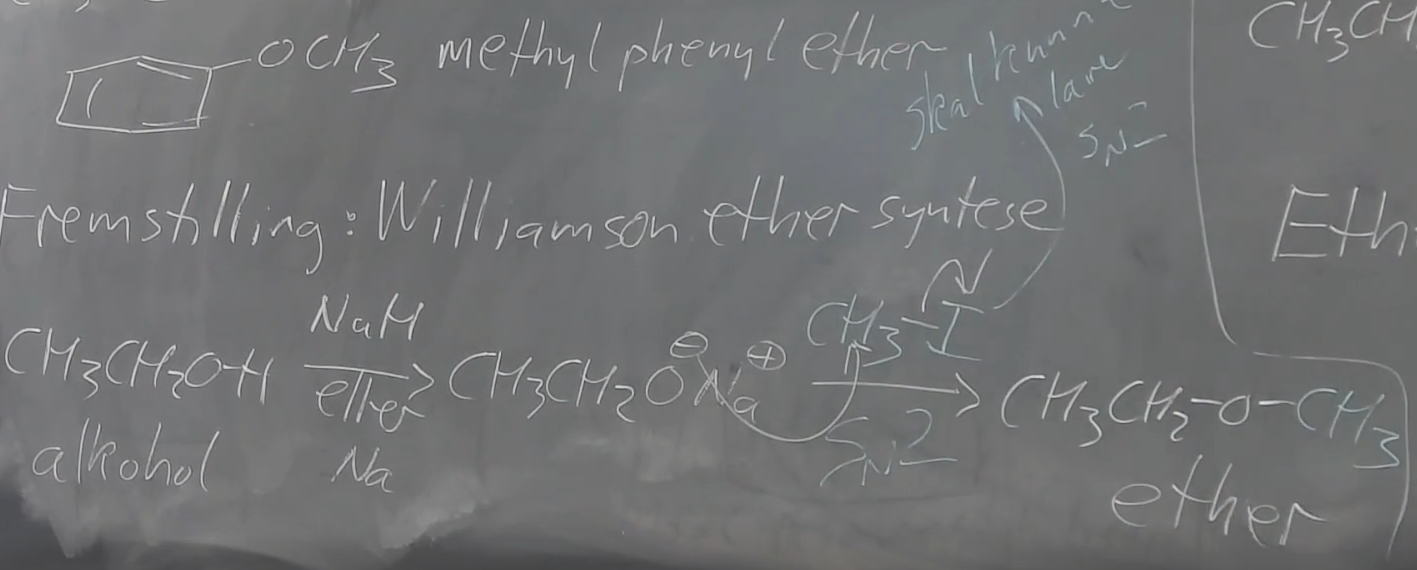 OCH3 methyl phenyl ether
skal kunne
lave
SN2
CH3CH
Fremstilling: Williamson ether syntese
Eth
NaH CH3-I
CH3CH2O-H ether CH3CH2O⊖ Na⊕ SN2 CH3CH2-O-CH3
alkohol Na ether